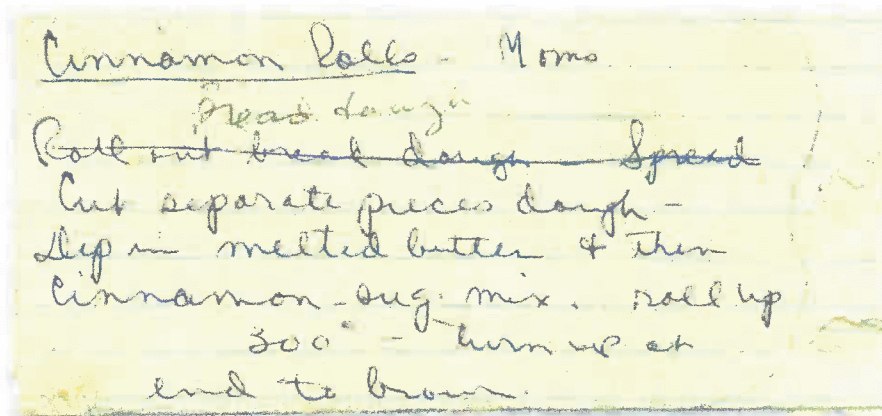 Cinnamon Rolls - Moms
Bread dough
Roll out bread dough - Spread
Cut separate pieces dough -
Dip in melted butter & then
Cinnamon - sug. mix. roll up
300° - turn up at
end to brown.